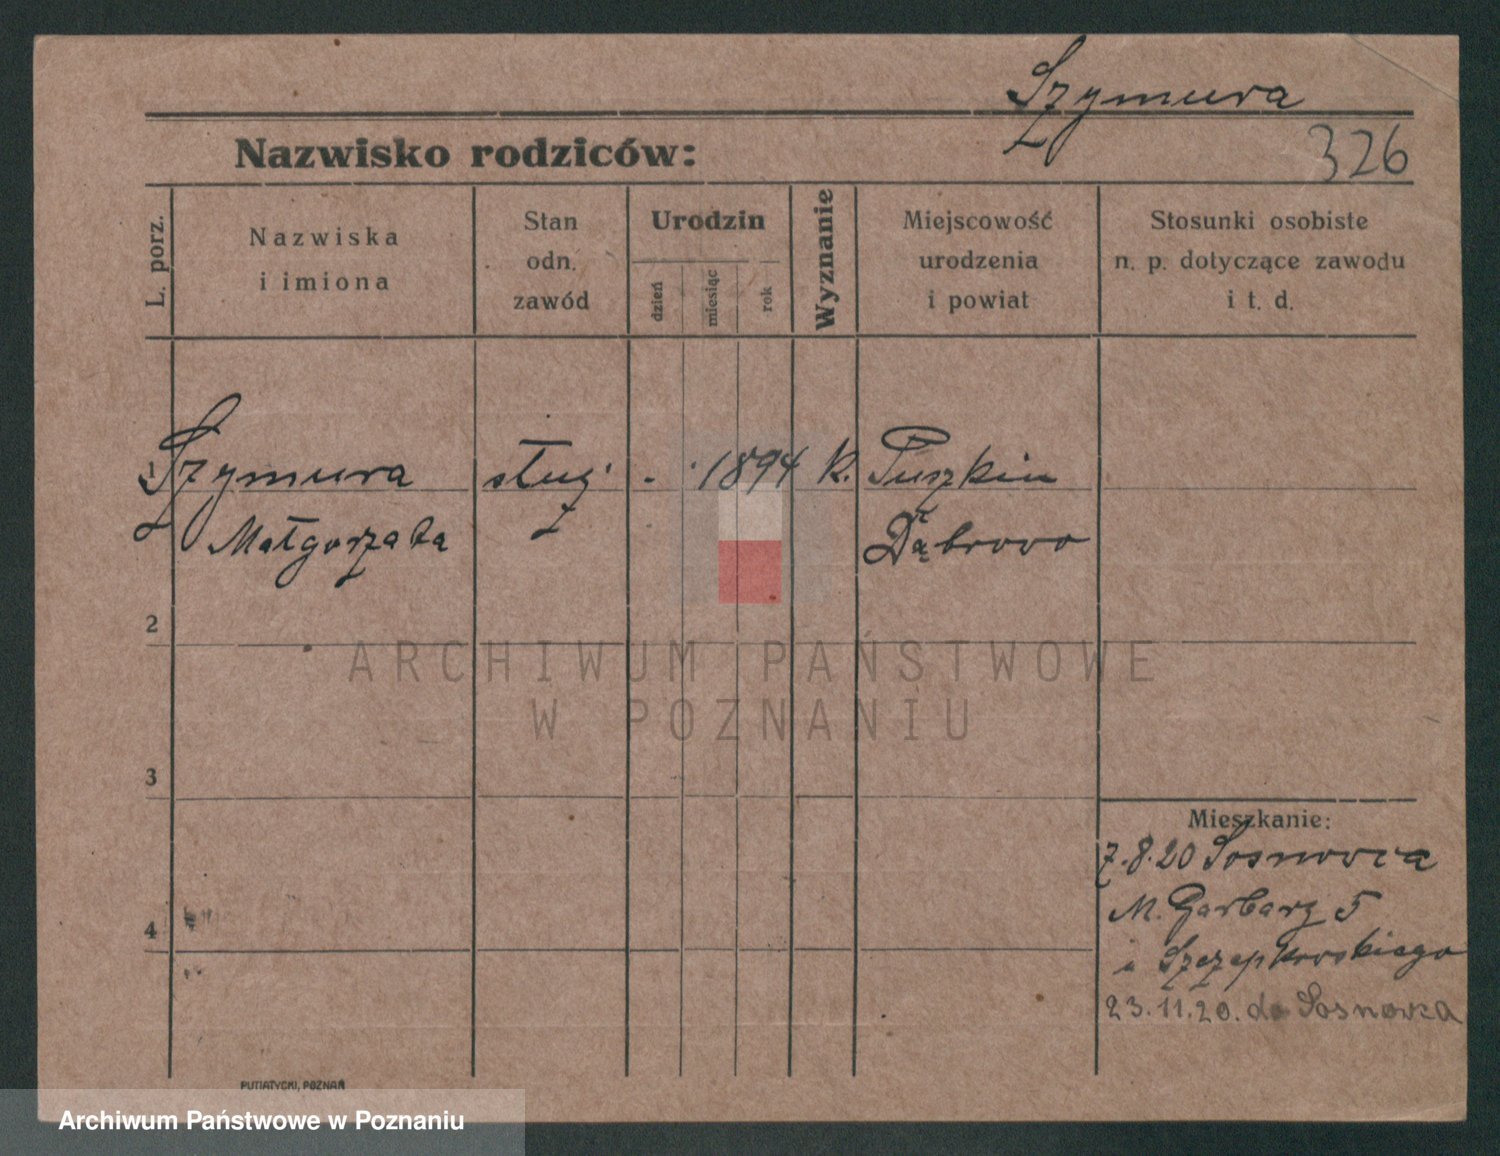 Szymura
Nazwisko rodziców:
326
L. porz.
Nazwiska
i imiona
Stan
odn.
zawód
Urodzin
dzień
miesiąc
rok
Wyznanie
Miejscowość
urodzenia
i powiat
Stosunki osobiste
n. p. dotyczące zawodu
i t. d.
1 Szymura służ. - . 1894 k. Puszkin
Małgorzata Dąbrowo
2
ARCHIWUM PAŃSTWOWE
W POZNANIU
3
Mieszkanie:
7.8.20 Sosnowca
M. Garbary 5
4
u Szczepkowskiego
23.11.20. do Sosnowca
PUTIATYCKI, POZNAŃ
Archiwum Państwowe w Poznaniu